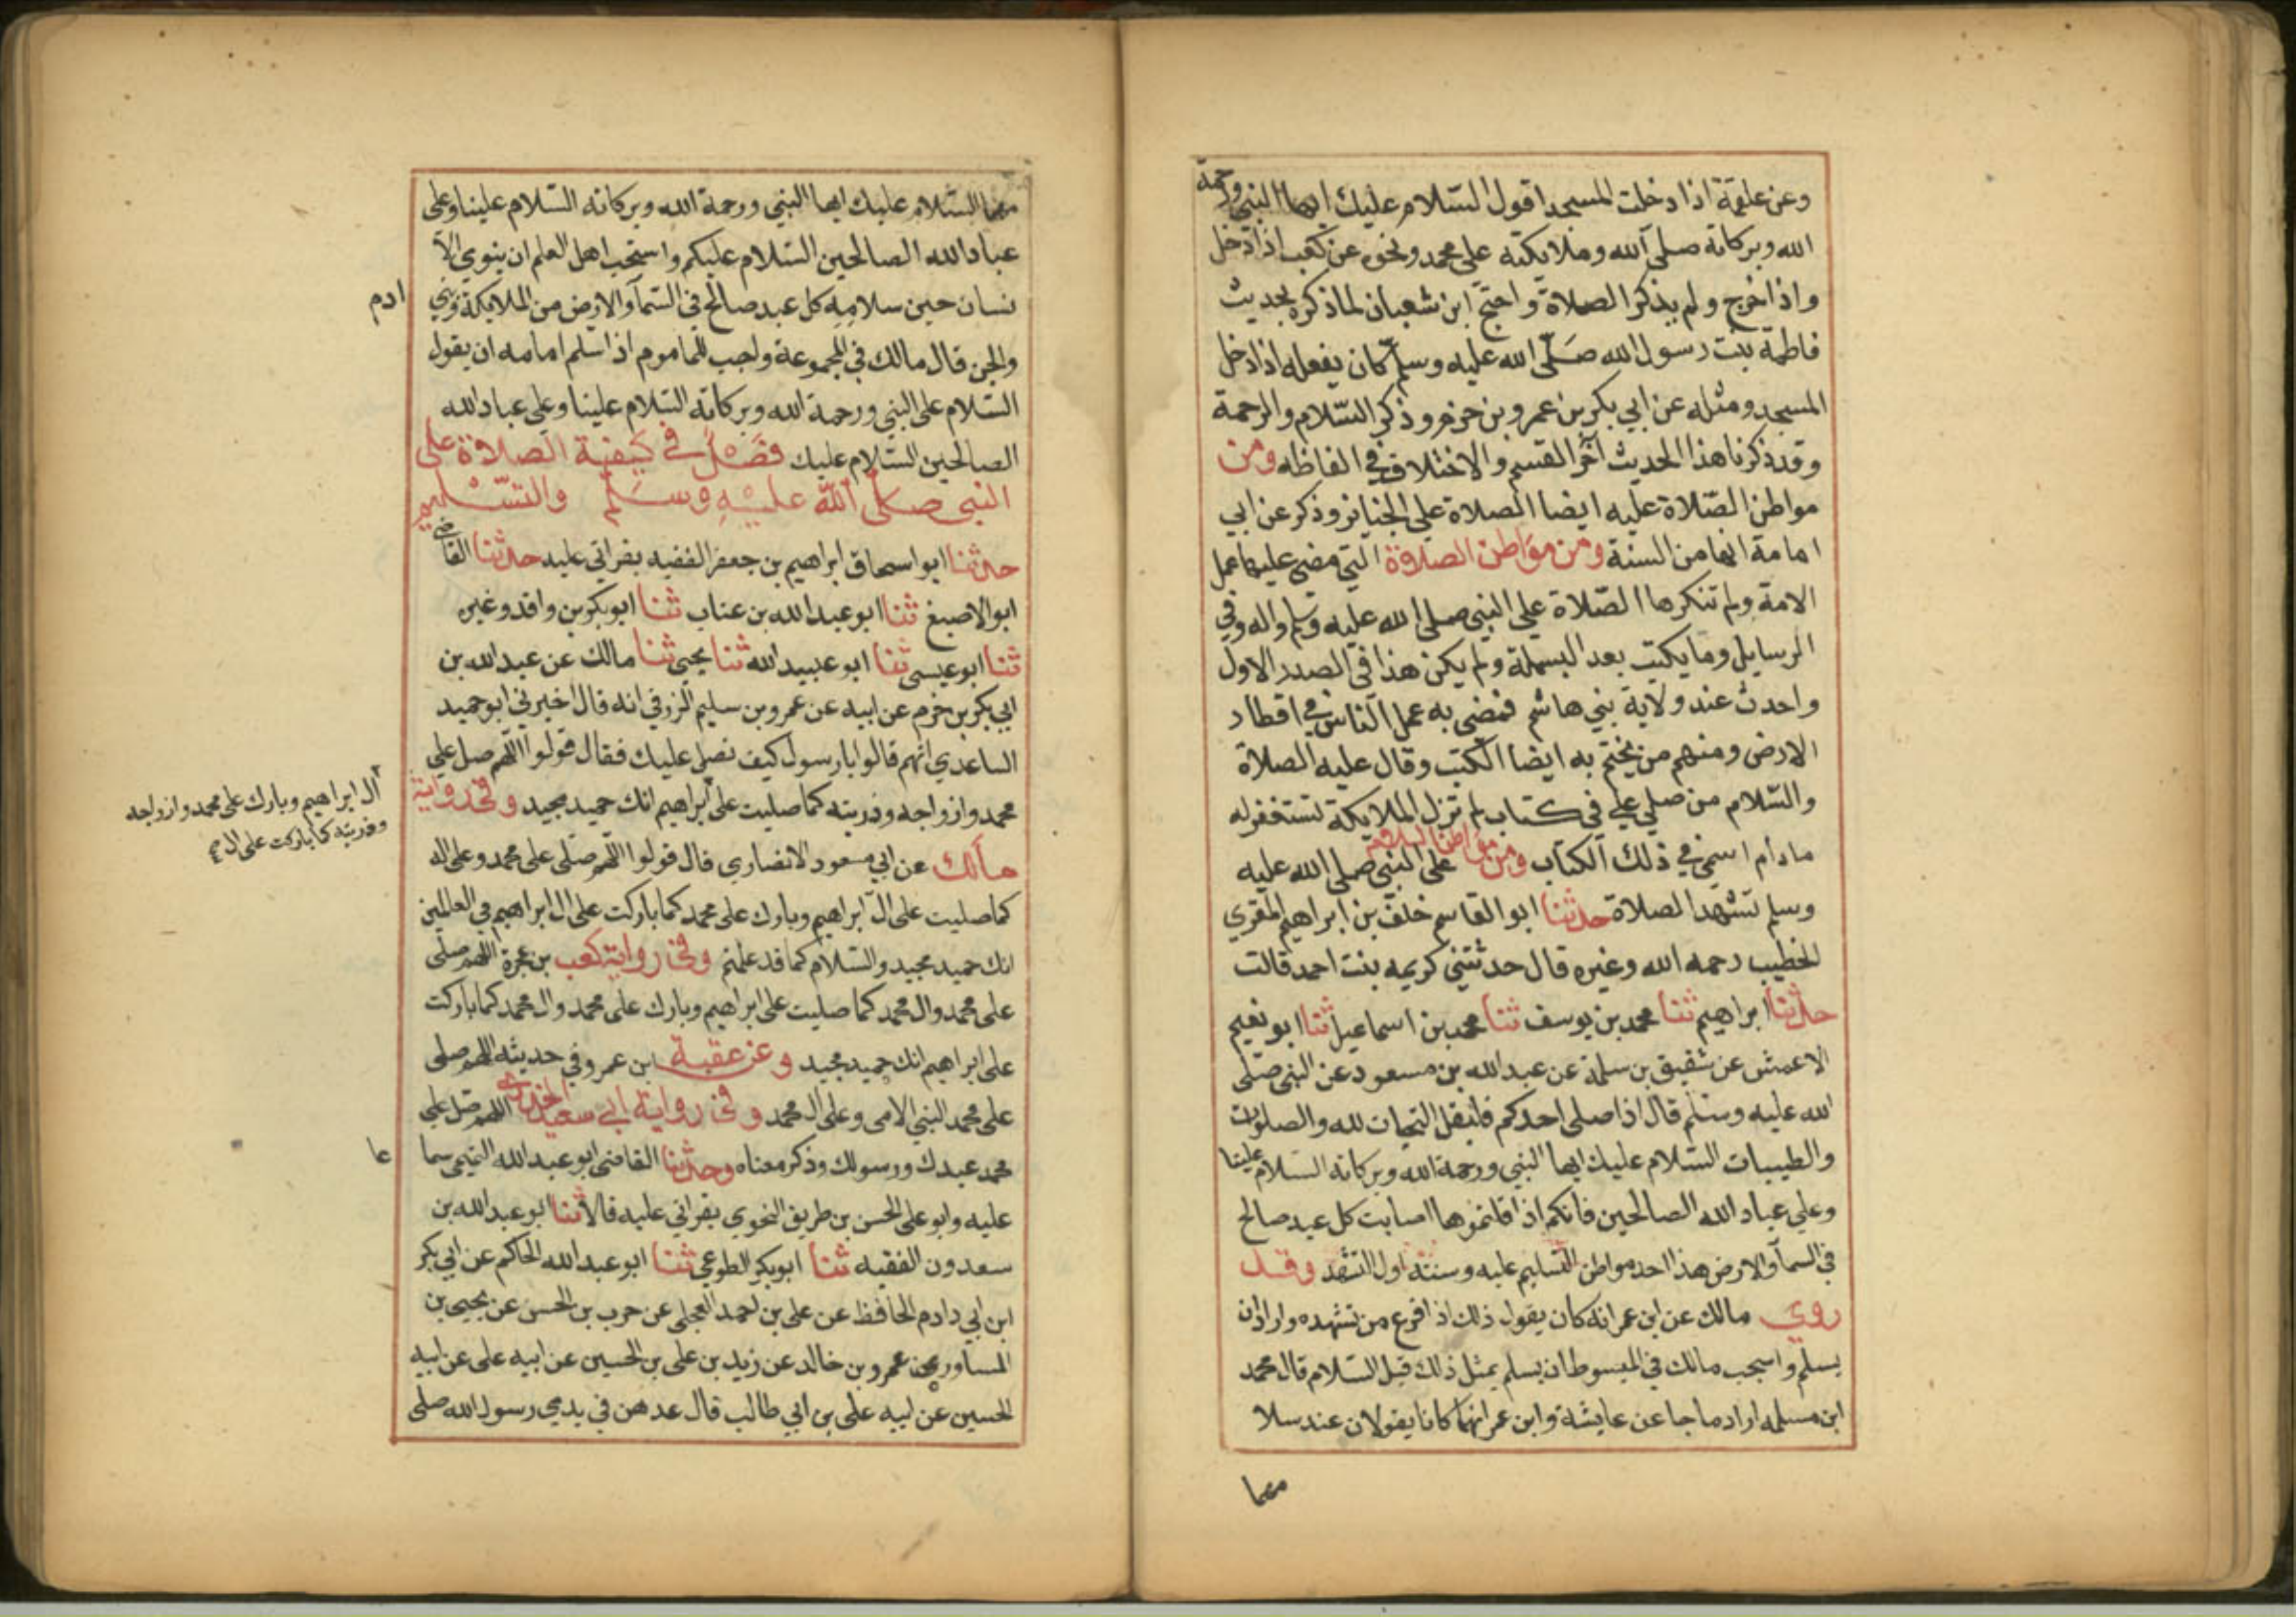 وعن علقمة اذا دخلت المسجد اقول السّلام عليك ايها النبي ورحمة
الله وبركاته صلى الله وملايكته على محمد ونحوه عن كعب اذا دخل
واذا خرج ولم يذكر الصلاة واحتج ابن شعبان لما ذكره بحديث
فاطمة بنت رسول الله صَلّى الله عليه وسلم كان يفعله اذا دخل
المسجد ومثله عن ابي بكر بن عمرو بن حزم وذكر السّلام والرحمة
وقد ذكرنا هذا الحديث آخر القسم والاختلاف في الفاظه ومن
مواطن الصّلاة عليه ايضا الصلاة على الجنايز وذكر عن ابي
امامة انها من السنة ومن مواطن الصلاة التي مضى عليها عمل
الامة ولم تنكرها الصّلاة على النبي صلى الله عليه وسلم واله وفي
الرسايل وما يكتب بعد البسملة ولم يكن هذا في الصدر الاول
واحدث عند ولاية بني هاشم فمضى به عمل الناس في اقطار
الارض ومنهم من يختم به ايضا الكتب وقال عليه الصلاة
والسّلام من صلى علي في كتاب لم تزل الملايكة تستغفر له
مادام اسمي في ذلك الكتاب ومن مواطن السلام على النبي صلى الله عليه
وسلم تشهد الصلاة حدثنا ابو القاسم خلف بن ابراهيم المقري
الخطيب رحمه الله وغيره قال حدثتني كريمه بنت احمد قالت
حدثنا ابراهيم ثنا محمد بن يوسف ثنا محمد بن اسماعيل ثنا ابو نعيم
الاعمش عن شقيق بن سلمة عن عبد الله بن مسعود عن النبي صلى
الله عليه وسلم قال اذا صلى احدكم فليقل التحيات لله والصلوات
والطيبات السّلام عليك ايها النبي ورحمة الله وبركاته السّلام علينا
وعلى عباد الله الصالحين فانكم اذا قلتموها اصابت كل عبد صالح
في السمآ والارض هذا احد مواطن التسليم عليه وسنته اول التشهد وقد
روي مالك عن ابن عمر انه كان يقول ذلك اذا فرغ من تشهده واراد ان
يسلم واستحب مالك في المبسوط ان يسلم بمثل ذلك قبل السّلام قال محمد
ابن مسلمه اراد ما جا عن عايشة وابن عمر انهما كانا يقولان عند سلا
مهما
مهما السّلام عليك ايها النبي ورحمة الله وبركاته السّلام علينا وعلى
عباد الله الصالحين السّلام عليكم واستحب اهل العلم ان ينوي الا
نسان حين سلامه كل عبد صالح في السّمآ والارض من الملايكة وبني
ادم
والجن قال مالك في المجموعة واحب للماموم اذا سلم امامه ان يقول
السّلام على النبي ورحمة الله وبركاته السّلام علينا وعلى عباد الله
الصالحين السّلام عليك فَصْلٌ في كيفية الصلاة على
النبي صلى الله عليه وسَلم والتسْليم
حدثنا ابو اسحاق ابراهيم بن جعفر الفقيه بقراتي عليه حدثنا القاضي
ابو الاصبغ ثنا ابو عبد الله بن عتاب ثنا ابو بكر بن واقد وغيره
ثنا ابو عيسى ثنا ابو عبيد الله ثنا يحيى ثنا مالك عن عبد الله بن
ابي بكر بن حزم عن ابيه عن عمرو بن سليم الزرقي انه قال اخبرني ابو حميد
الساعدي انهم قالوا يا رسول كيف نصلي عليك فقال قولوا اللهم صل على
محمد وازواجه وذريته كما صليت على ابراهيم انك حميد مجيد وفي رواية
آل ابراهيم وبارك على محمد وازواجه
وذريته كما باركت على ال
مالك عن ابي مسعود الانصاري قال قولوا اللهم صلى على محمد وعلى اله
كما صليت على ال ابراهيم وبارك على محمد كما باركت على ال ابراهيم في العالمين
انك حميد مجيد والسّلام كما قد علمتم وفي رواية كعب بن عجرة اللهم صلى
على محمد وال محمد كما صليت على ابراهيم وبارك على محمد وال محمد كما باركت
على ابراهيم انك حميد مجيد وعن عقبة ابن عمرو في حديثه اللهم صلى
على محمد النبي الامي وعلى ال محمد وفي رواية ابي سعيد الخدري اللهم صل على
محمد عبدك ورسولك وذكر معناه وحدثنا القاضي ابو عبد الله التميمي سما
عا
عليه وابو علي الحسن بن طريف النحوي بقراتي عليه قالا ثنا ابو عبد الله بن
سعدون الفقيه ثنا ابو بكر المطوعي ثنا ابو عبد الله الحاكم عن ابي بكر
ابن ابي دارم الحافظ عن علي بن احمد العجلي عن حرب بن الحسن عن يحيى بن
المساور عن عمرو بن خالد عن زيد بن علي بن الحسين عن ابيه علي عن ابيه
الحسين عن ابيه علي بن ابي طالب قال عدهن في يدي رسول الله صلى